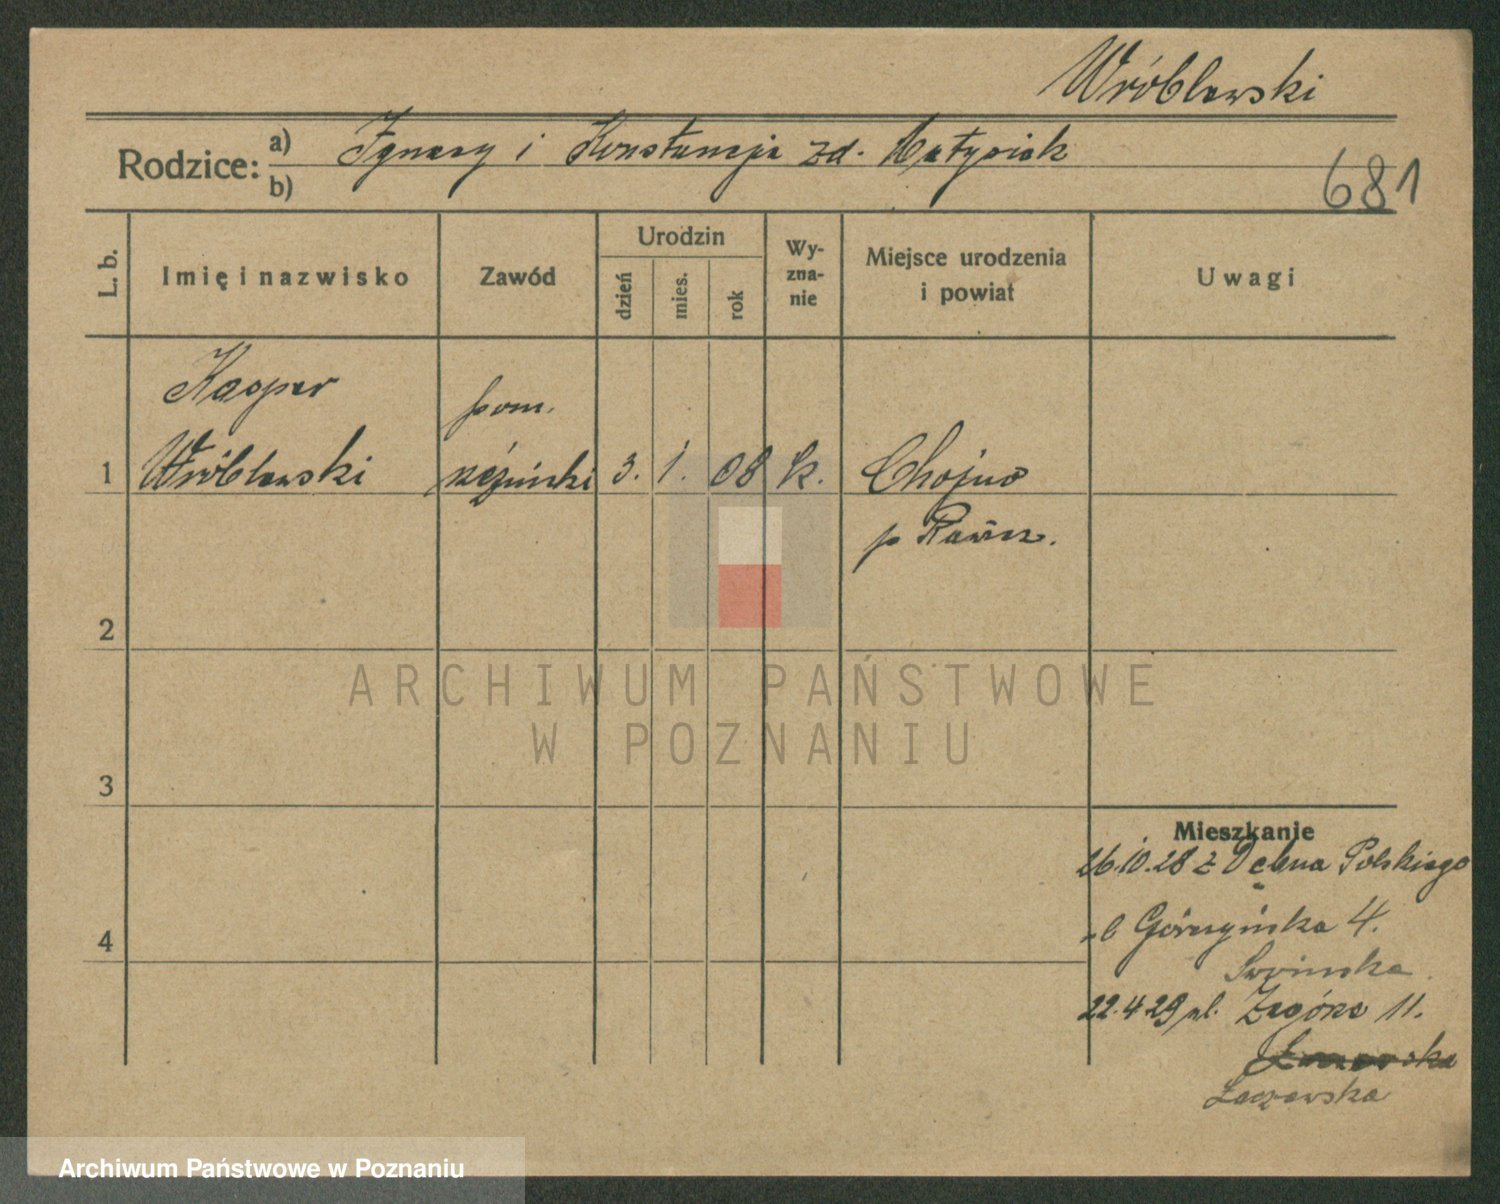 Wróblewski
Rodzice: a) Ignacy i Konstancja zd. Matysiak
b)
681
L. b.
Imię i nazwisko
Zawód
Urodzin
dzień
mies.
rok
Wy-
zna-
nie
Miejsce urodzenia
i powiat
Uwagi
Kasper
pom.
1 Wróblewski rzeźnicki 3. 1. 08 k. Chojno
p Rawicz.
2
ARCHIWUM PAŃSTWOWE
W POZNANIU
3
Mieszkanie
26.10.28 z Dębna Polskiego
4
ul Górczyńska 4.
22.4.29 ul. Zagórze 11.
Łaczewska
Archiwum Państwowe w Poznaniu